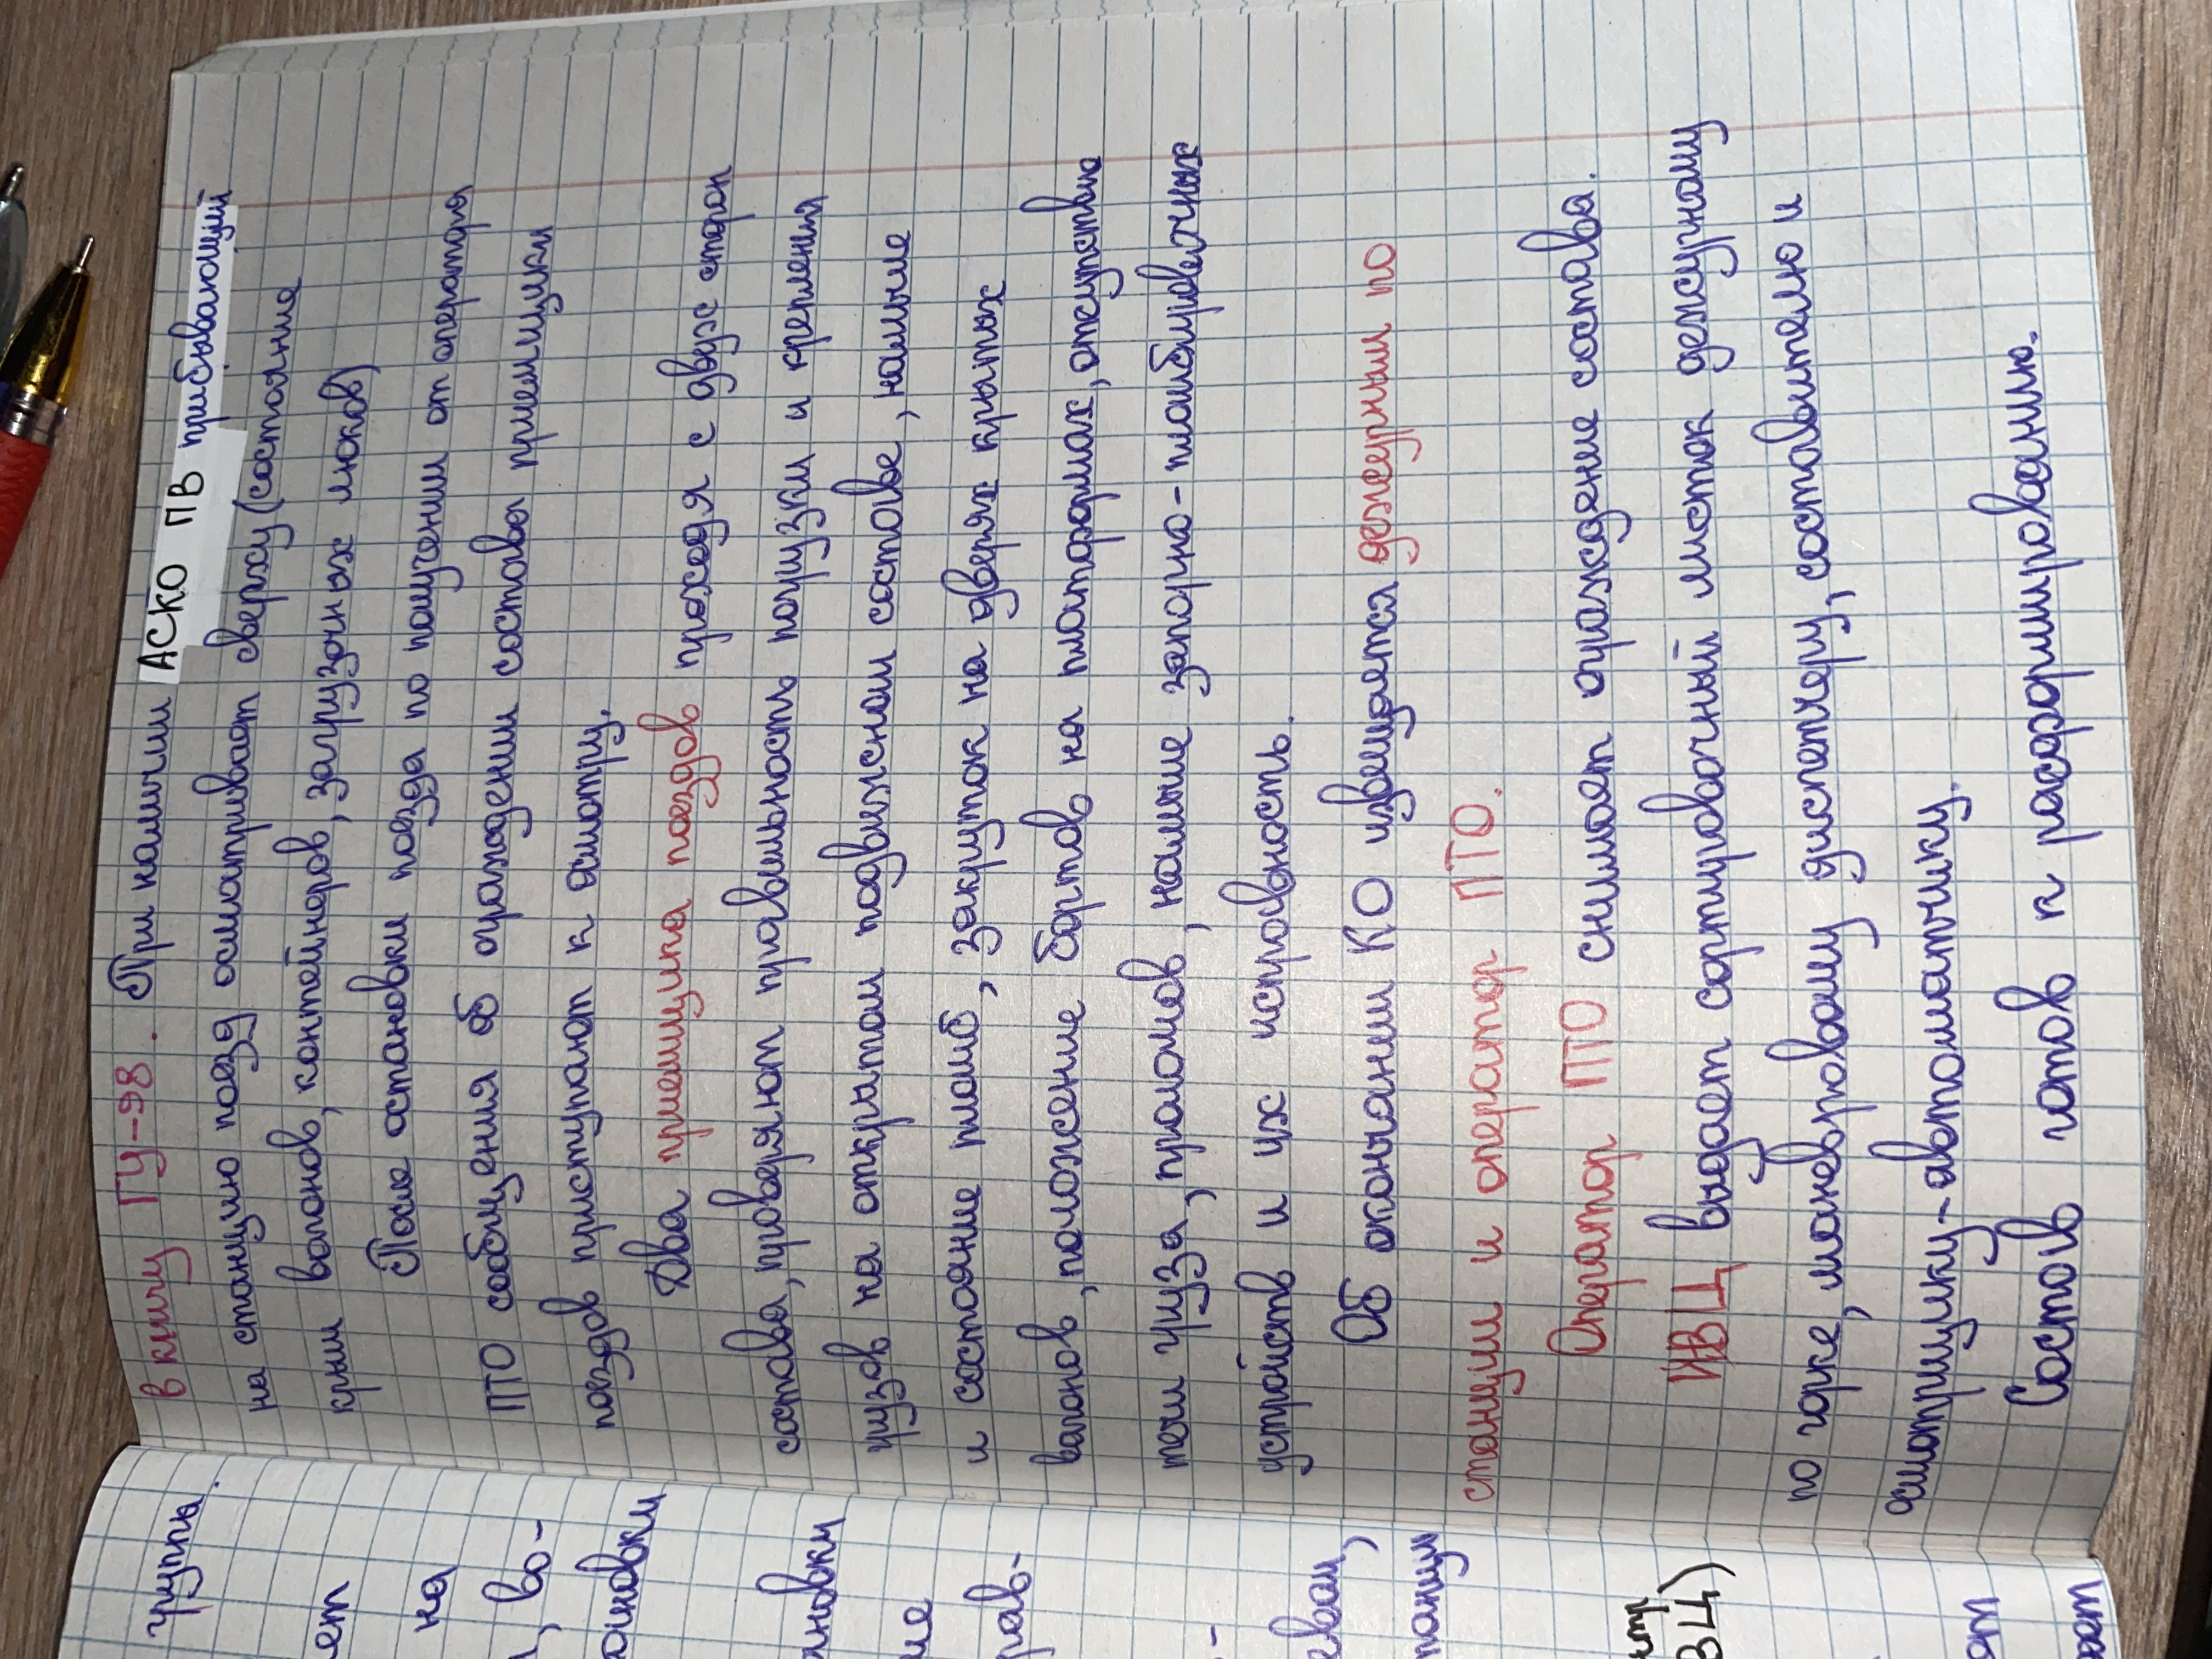 в книгу ГУ-98. При наличии АСКО ПВ прибывающий
на станцию поезд осматривает сверху (состояние
крыш вагонов, контейнеров, загрузочных люков)
После остановки поезда по получении от оператора
ПТО сообщения об ограждении состава приемщики
поездов приступают к осмотру.
Два приемщика поездов проходя с двух сторон
состава, проверяют правильность погрузки и крепления
грузов на открытом подвижном составе, наличие
и состояние пломб, закруток на дверях крытых
вагонов, положение бортов на платформах, отсутствие
течи груза, проломов, наличие запорно-пломбировочных
устройств и их исправность.
Об окончании КО извещается дежурный по
станции и оператор ПТО.
Оператор ПТО снимает ограждение состава.
ИВЦ выдает сортировочный листок дежурному
по горке, маневровому диспетчеру, составителю и
осмотрщику-автоматчику.
Состав готов к расформированию.
группа.
ет
на
, ва-
тановки
ановки
ие
рав-
-
евом,
танции
ВЦ)
ят
жет